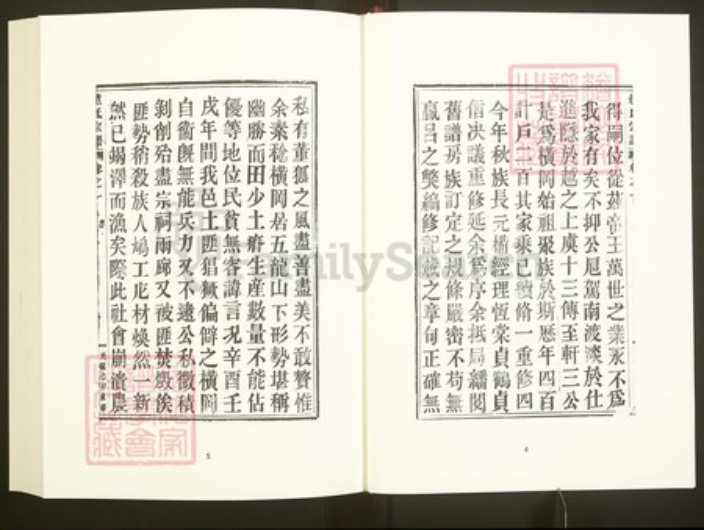 得嗣位從茲帝王萬世之業永不爲
我家有矣不抑公扈駕南渡淡於仕
進隱於越之上虞十三傳至軒三公
是爲橫岡始祖聚族於斯歷年四百
計戶二百其家乘已續脩一重修四
今年秋族長元楨經理恆棠貞鶴貞
信决議重修延余爲序余抵局繙閱
舊譜房族訂定之規條嚴密不苟無
嬴呂之獘編修記載之章句正確無
4
私有董狐之風盡善盡美不敢贅惟
余素稔橫岡居五龍山下形勢堪稱
幽勝而田少土瘠生產數量不能佔
優等地位民貧無容諱言況辛酉壬
戌年間我邑土匪猖獗偏僻之橫岡
自衞旣無能兵力又不逮公私微積
剝削殆盡宗祠兩廊又被匪焚毀俟
匪勢稍殺族人鳩工庀材煥然一新
然已竭澤而漁矣際此社會崩潰農
5
FamilySearch